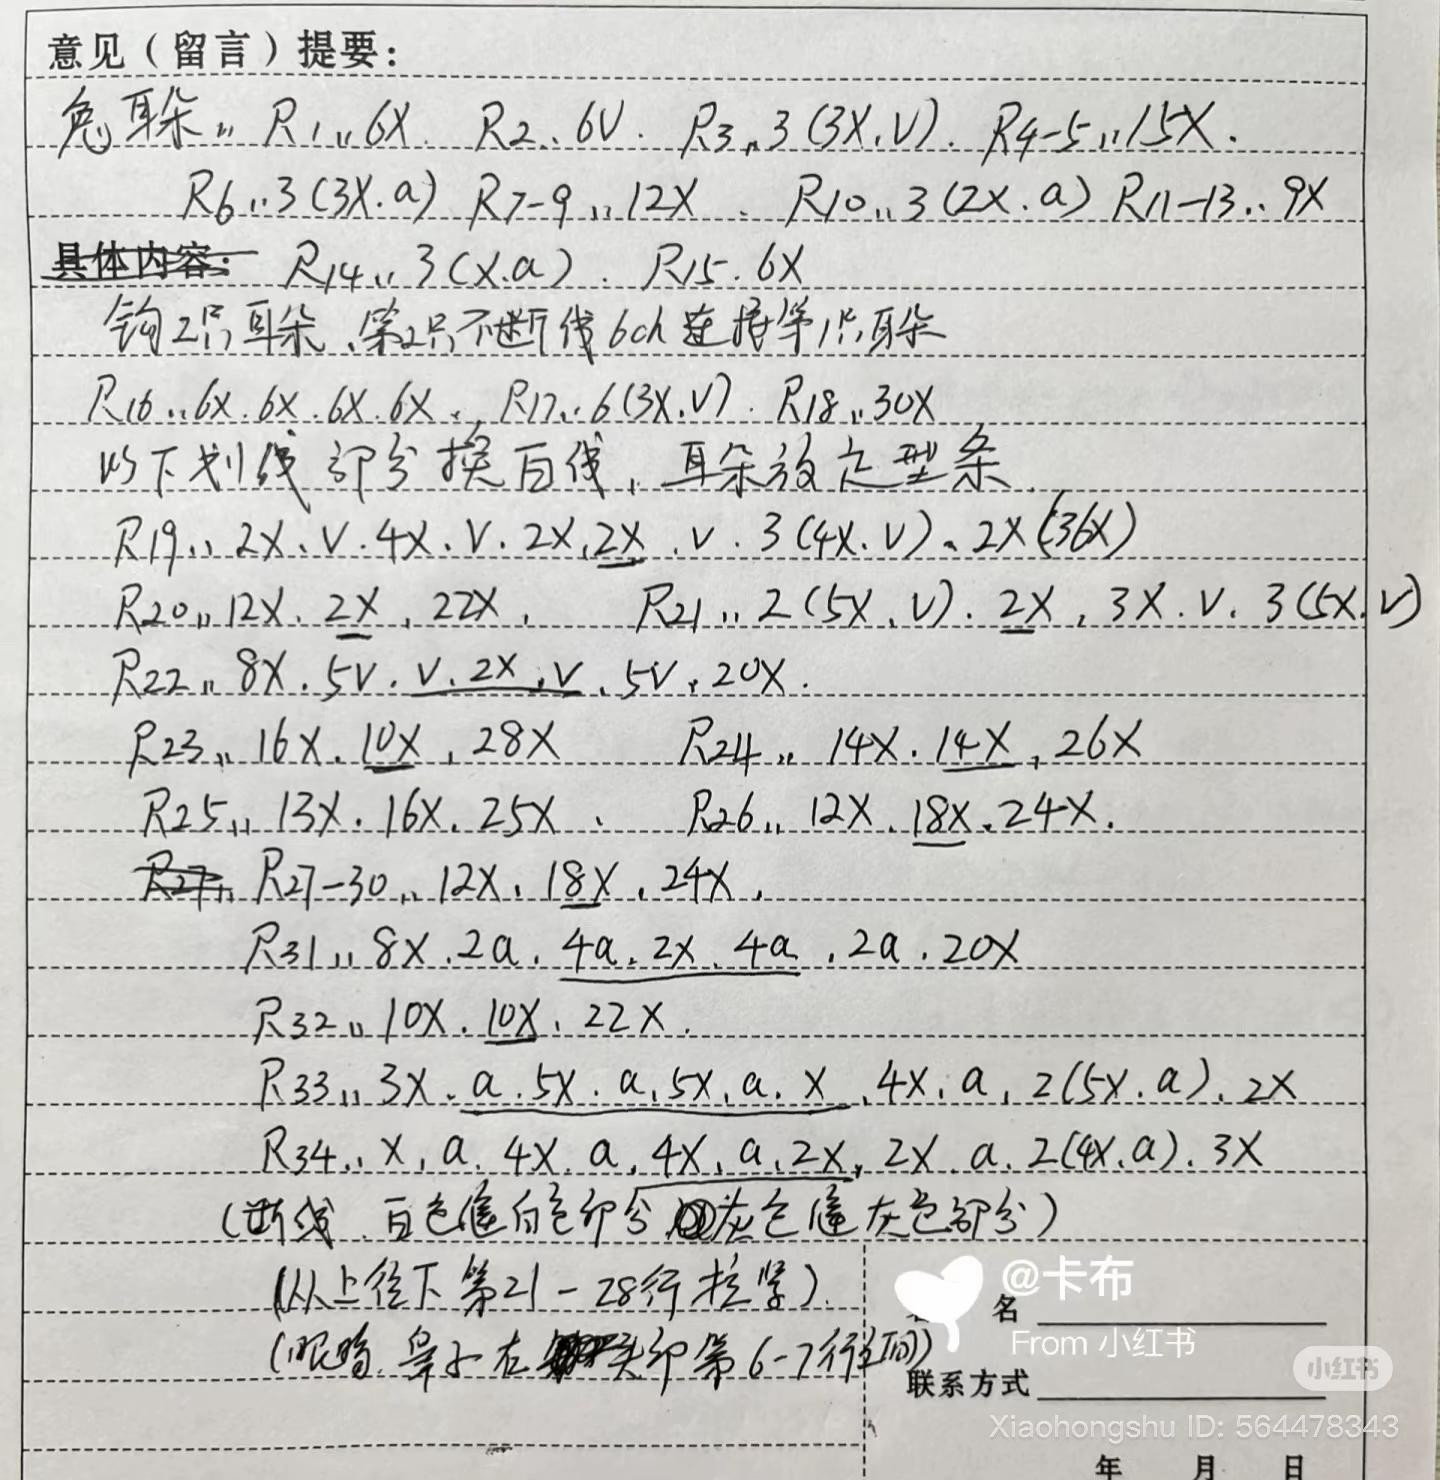 意见（留言）提要：
兔耳朵：R1：6X. R2：6V. R3：3(3X.V). R4-5：15X.
R6：3(3X.a) R7-9：12X. R10：3(2X.a) R11-13：9X
具体内容： R14：3(X.a). R15. 6X
钩2只耳朵、第2只不断线6ch连接第1只耳朵
R16：6X.6X.6X.6X. R17：6(3X.V). R18：30X
以下划线部分换白线，耳朵放定型条.
R19：2X.V.4X.V.2X.2X.V.3(4X.V).2X(36X)
R20：12X.2X.22X. R21：2(5X.V).2X.3X.V.3(5X.V)
R22：8X.5V.V.2X.V.5V.20X.
R23：16X.10X.28X R24：14X.14X.26X
R25：13X.16X.25X. R26：12X.18X.24X.
R27： R27-30：12X.18X.24X.
R31：8X.2a.4a.2X.4a.2a.20X
R32：10X.10X.22X.
R33：3X.a.5X.a.5X.a.X.4X.a.2(5X.a).2X
R34：X.a.4X.a.4X.a.2X.2X.a.2(4X.a).3X
(断线.白色缝白色部分 灰色缝灰色部分)
(从上往下第21-28行拉紧).
(眼睛.鼻子在头部第6-7行之间)
@卡布
名
From 小红书
小红书
联系方式
Xiaohongshu ID: 564478343
年 月 日